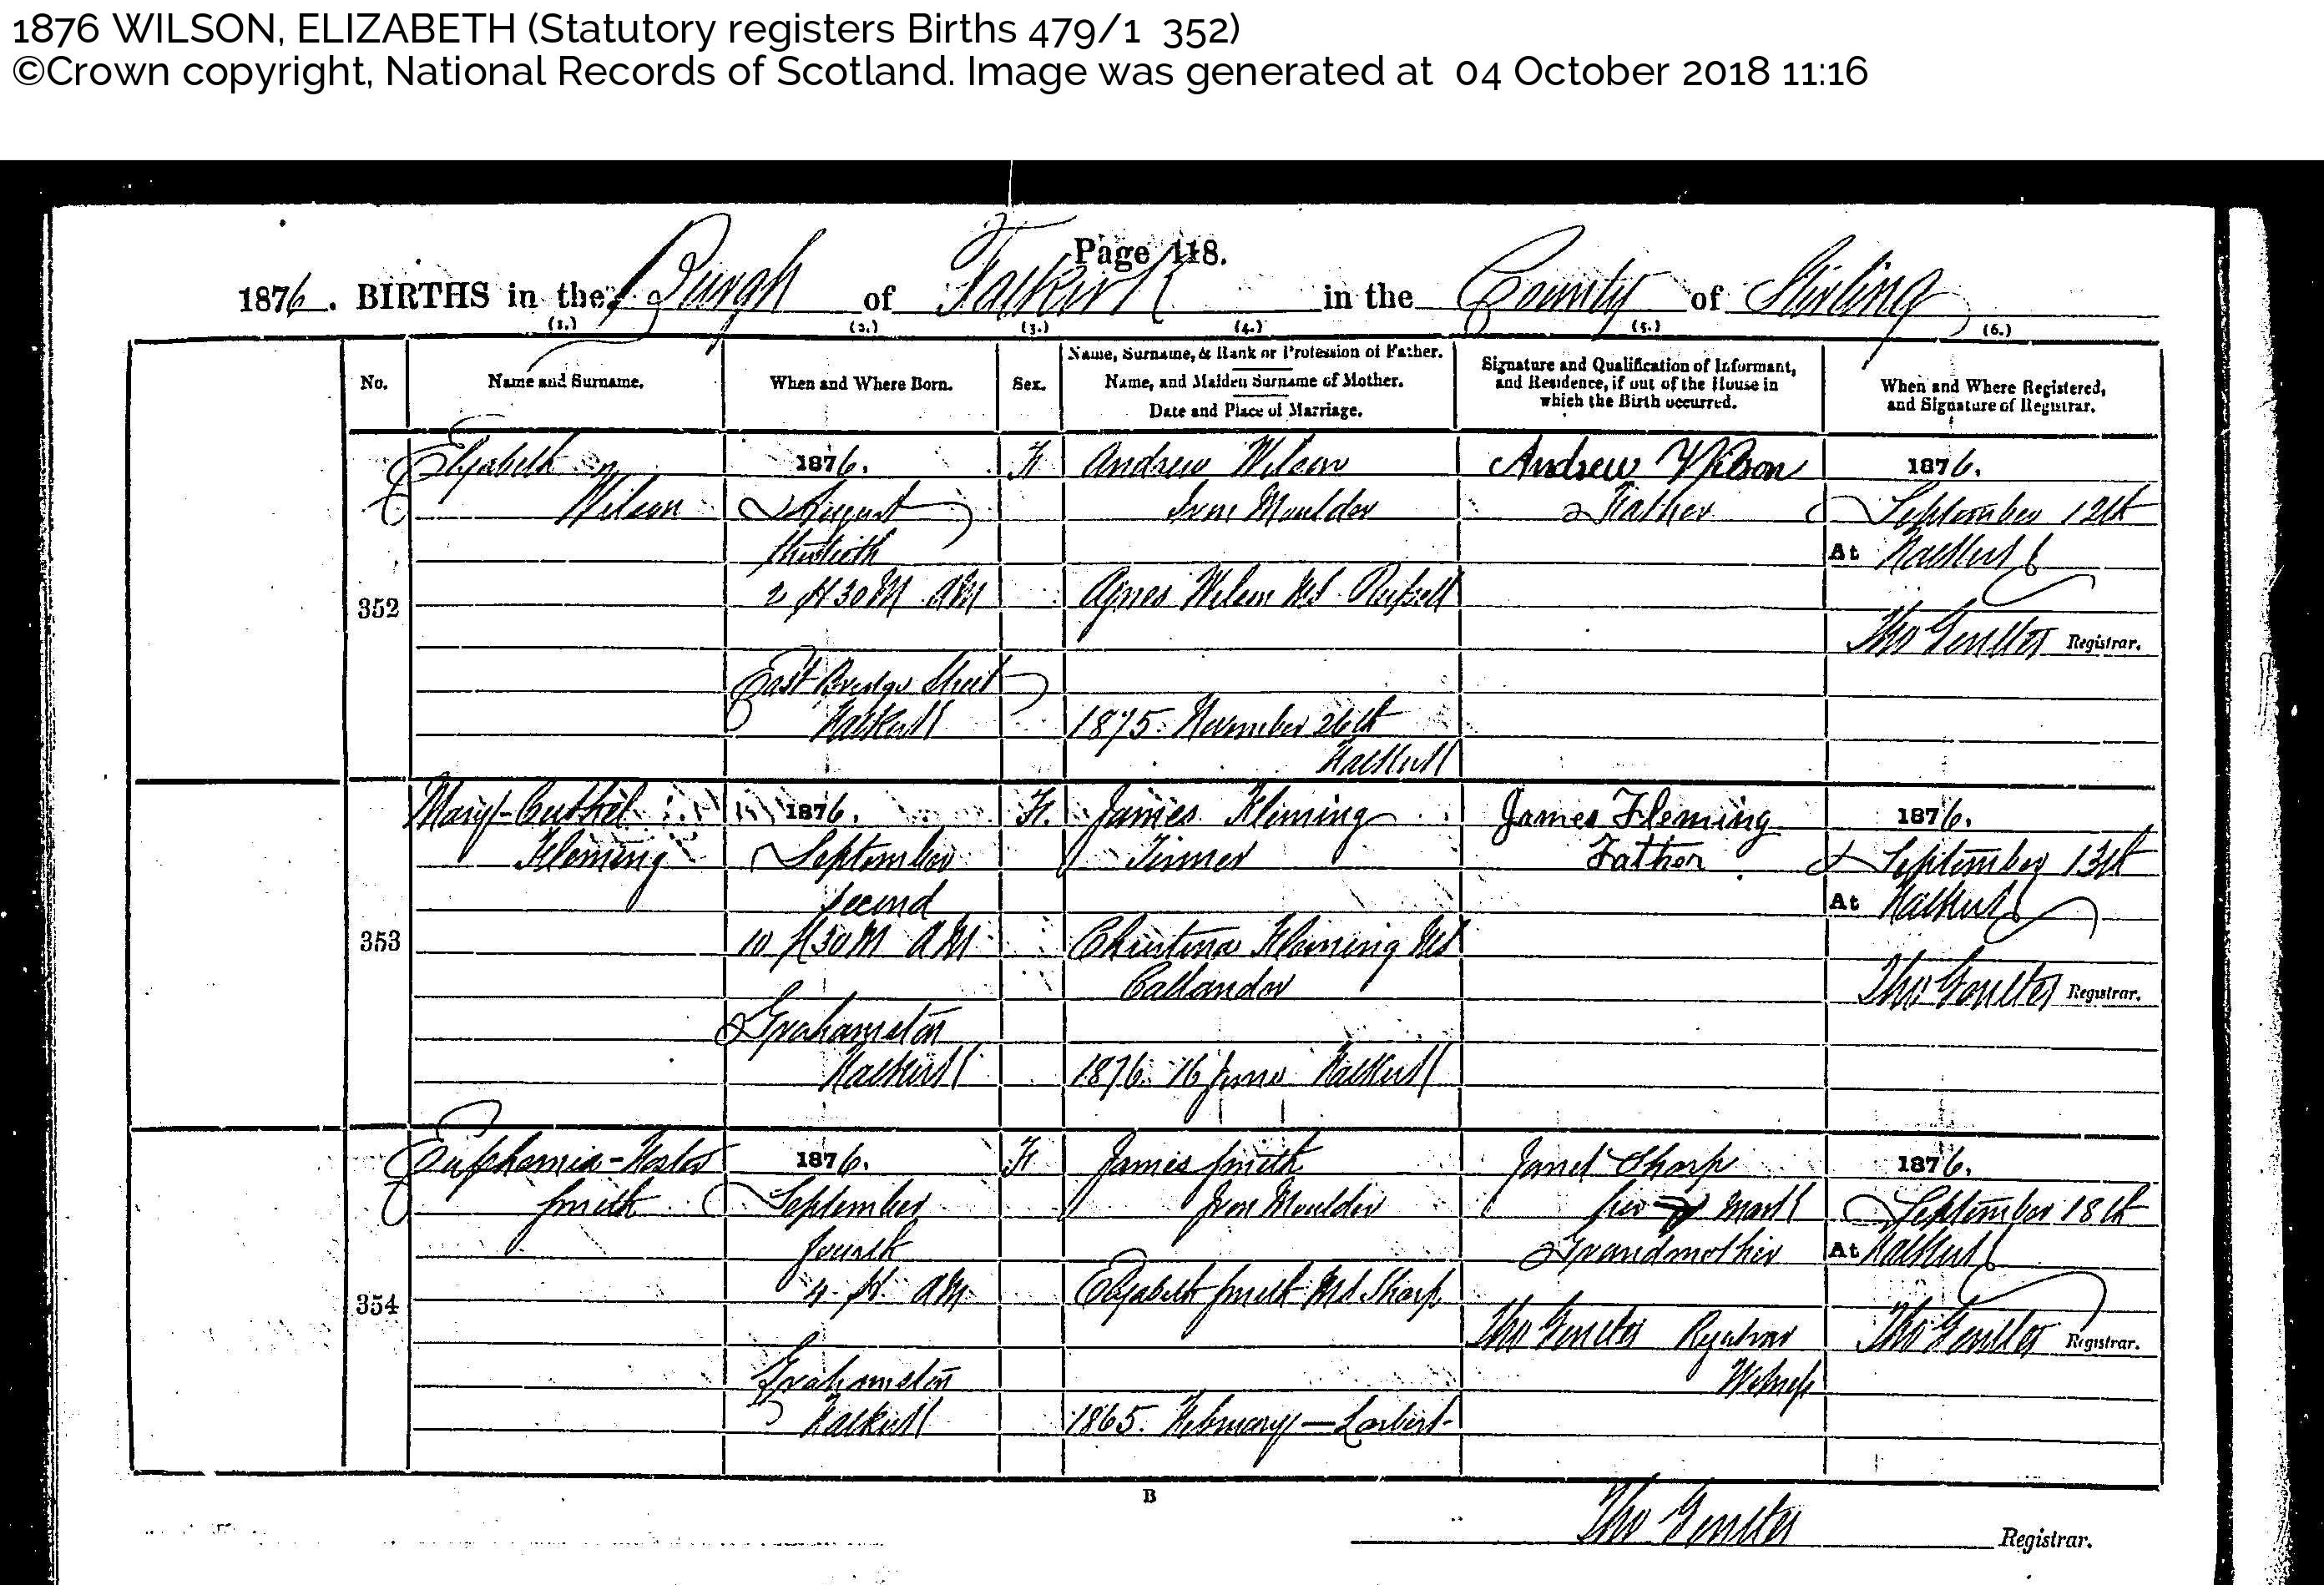 1876 WILSON, ELIZABETH (Statutory registers Births 479/1 352)
©Crown copyright, National Records of Scotland. Image was generated at 04 October 2018 11:16
Page 118.
1876. BIRTHS in the Burgh of Falkirk in the County of Stirling
(1.) (2.) (3.) (4.) (5.) (6.)
No.
Name and Surname.
When and Where Born.
Sex.
Name, Surname, & Rank or Profession of Father.
Name, and Maiden Surname of Mother.
Date and Place of Marriage.
Signature and Qualification of Informant,
and Residence, if out of the House in
which the Birth occurred.
When and Where Registered,
and Signature of Registrar.
352
Elizabeth
Wilson
1876.
August
thirtieth
2 H 30 M AM
East Bridge Street
Falkirk
F
Andrew Wilson
Iron Moulder
Agnes Wilson MS Russell
1875. November 26th
Falkirk
Andrew Wilson
Father
1876.
September 12th
At Falkirk
Tho Registrar.
353
Mary-Cuthel
Fleming
1876.
September
Second
10 H 30 M AM
Grahamston
Falkirk
F.
James Fleming
Christina Fleming MS
Callander
1876. 16 June Falkirk
James Fleming
Father
1876.
September 13th
At Falkirk
Tho Registrar.
354
Euphemia-
Smith
1876.
September
fourth
4. H. AM
Grahamston
Falkirk
F
James Smith
Iron Moulder
Elizabeth Smith MS Sharp
1865. February — Larbert
Janet Sharp
her x mark
Grandmother
Tho Registrar
Witness
1876.
September 18th
At Falkirk
Tho Registrar.
B
Tho Registrar.